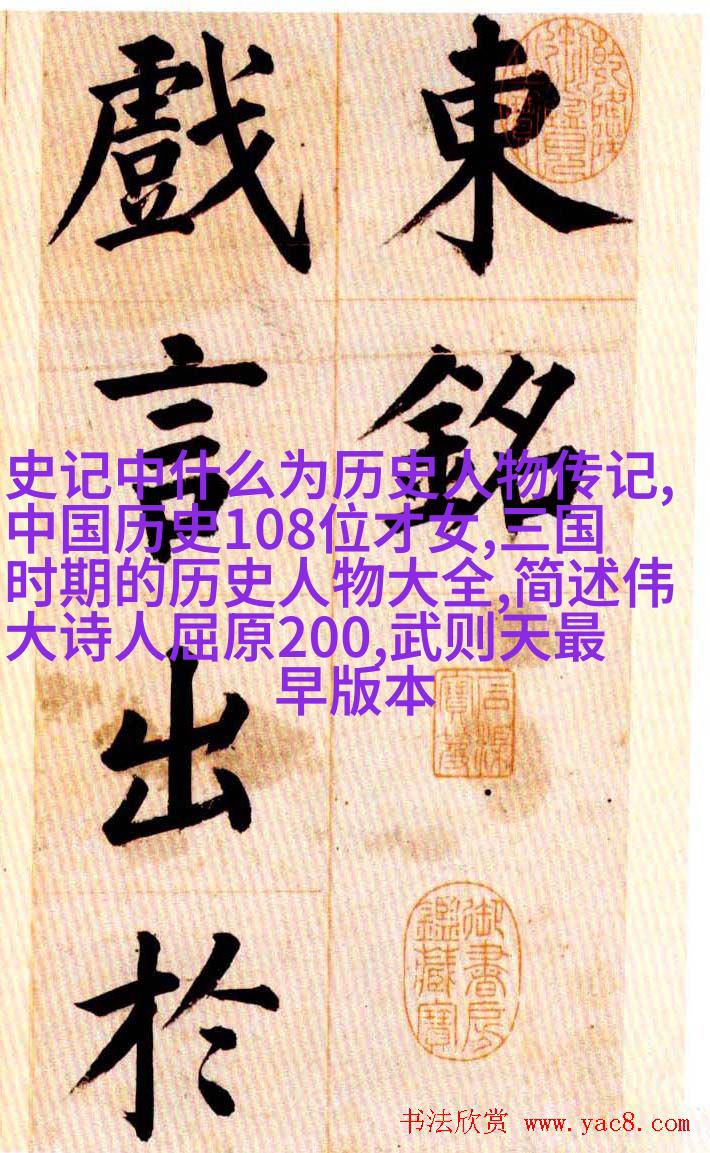 東銘
戲言出於
史记中什么为历史人物传记,
中国历史108位才女,三国
时期的历史人物大全,简述伟
大诗人屈原200,武则天最
早版本
御書房鑑藏寶
书法欣赏 www.yac8.com